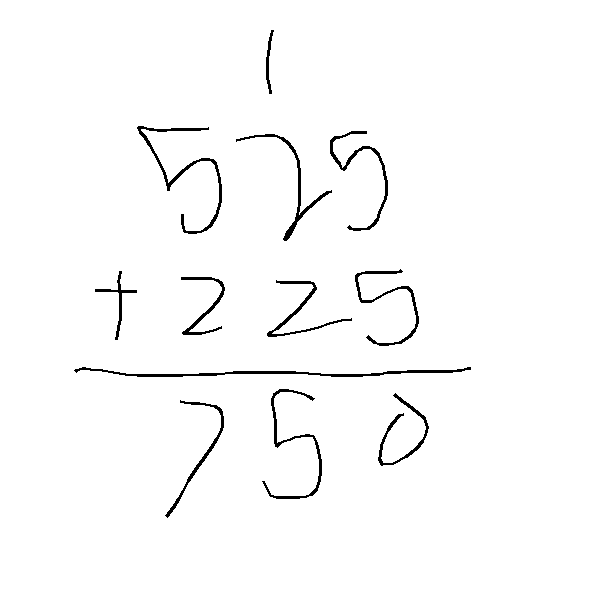 1
525
+ 225
750